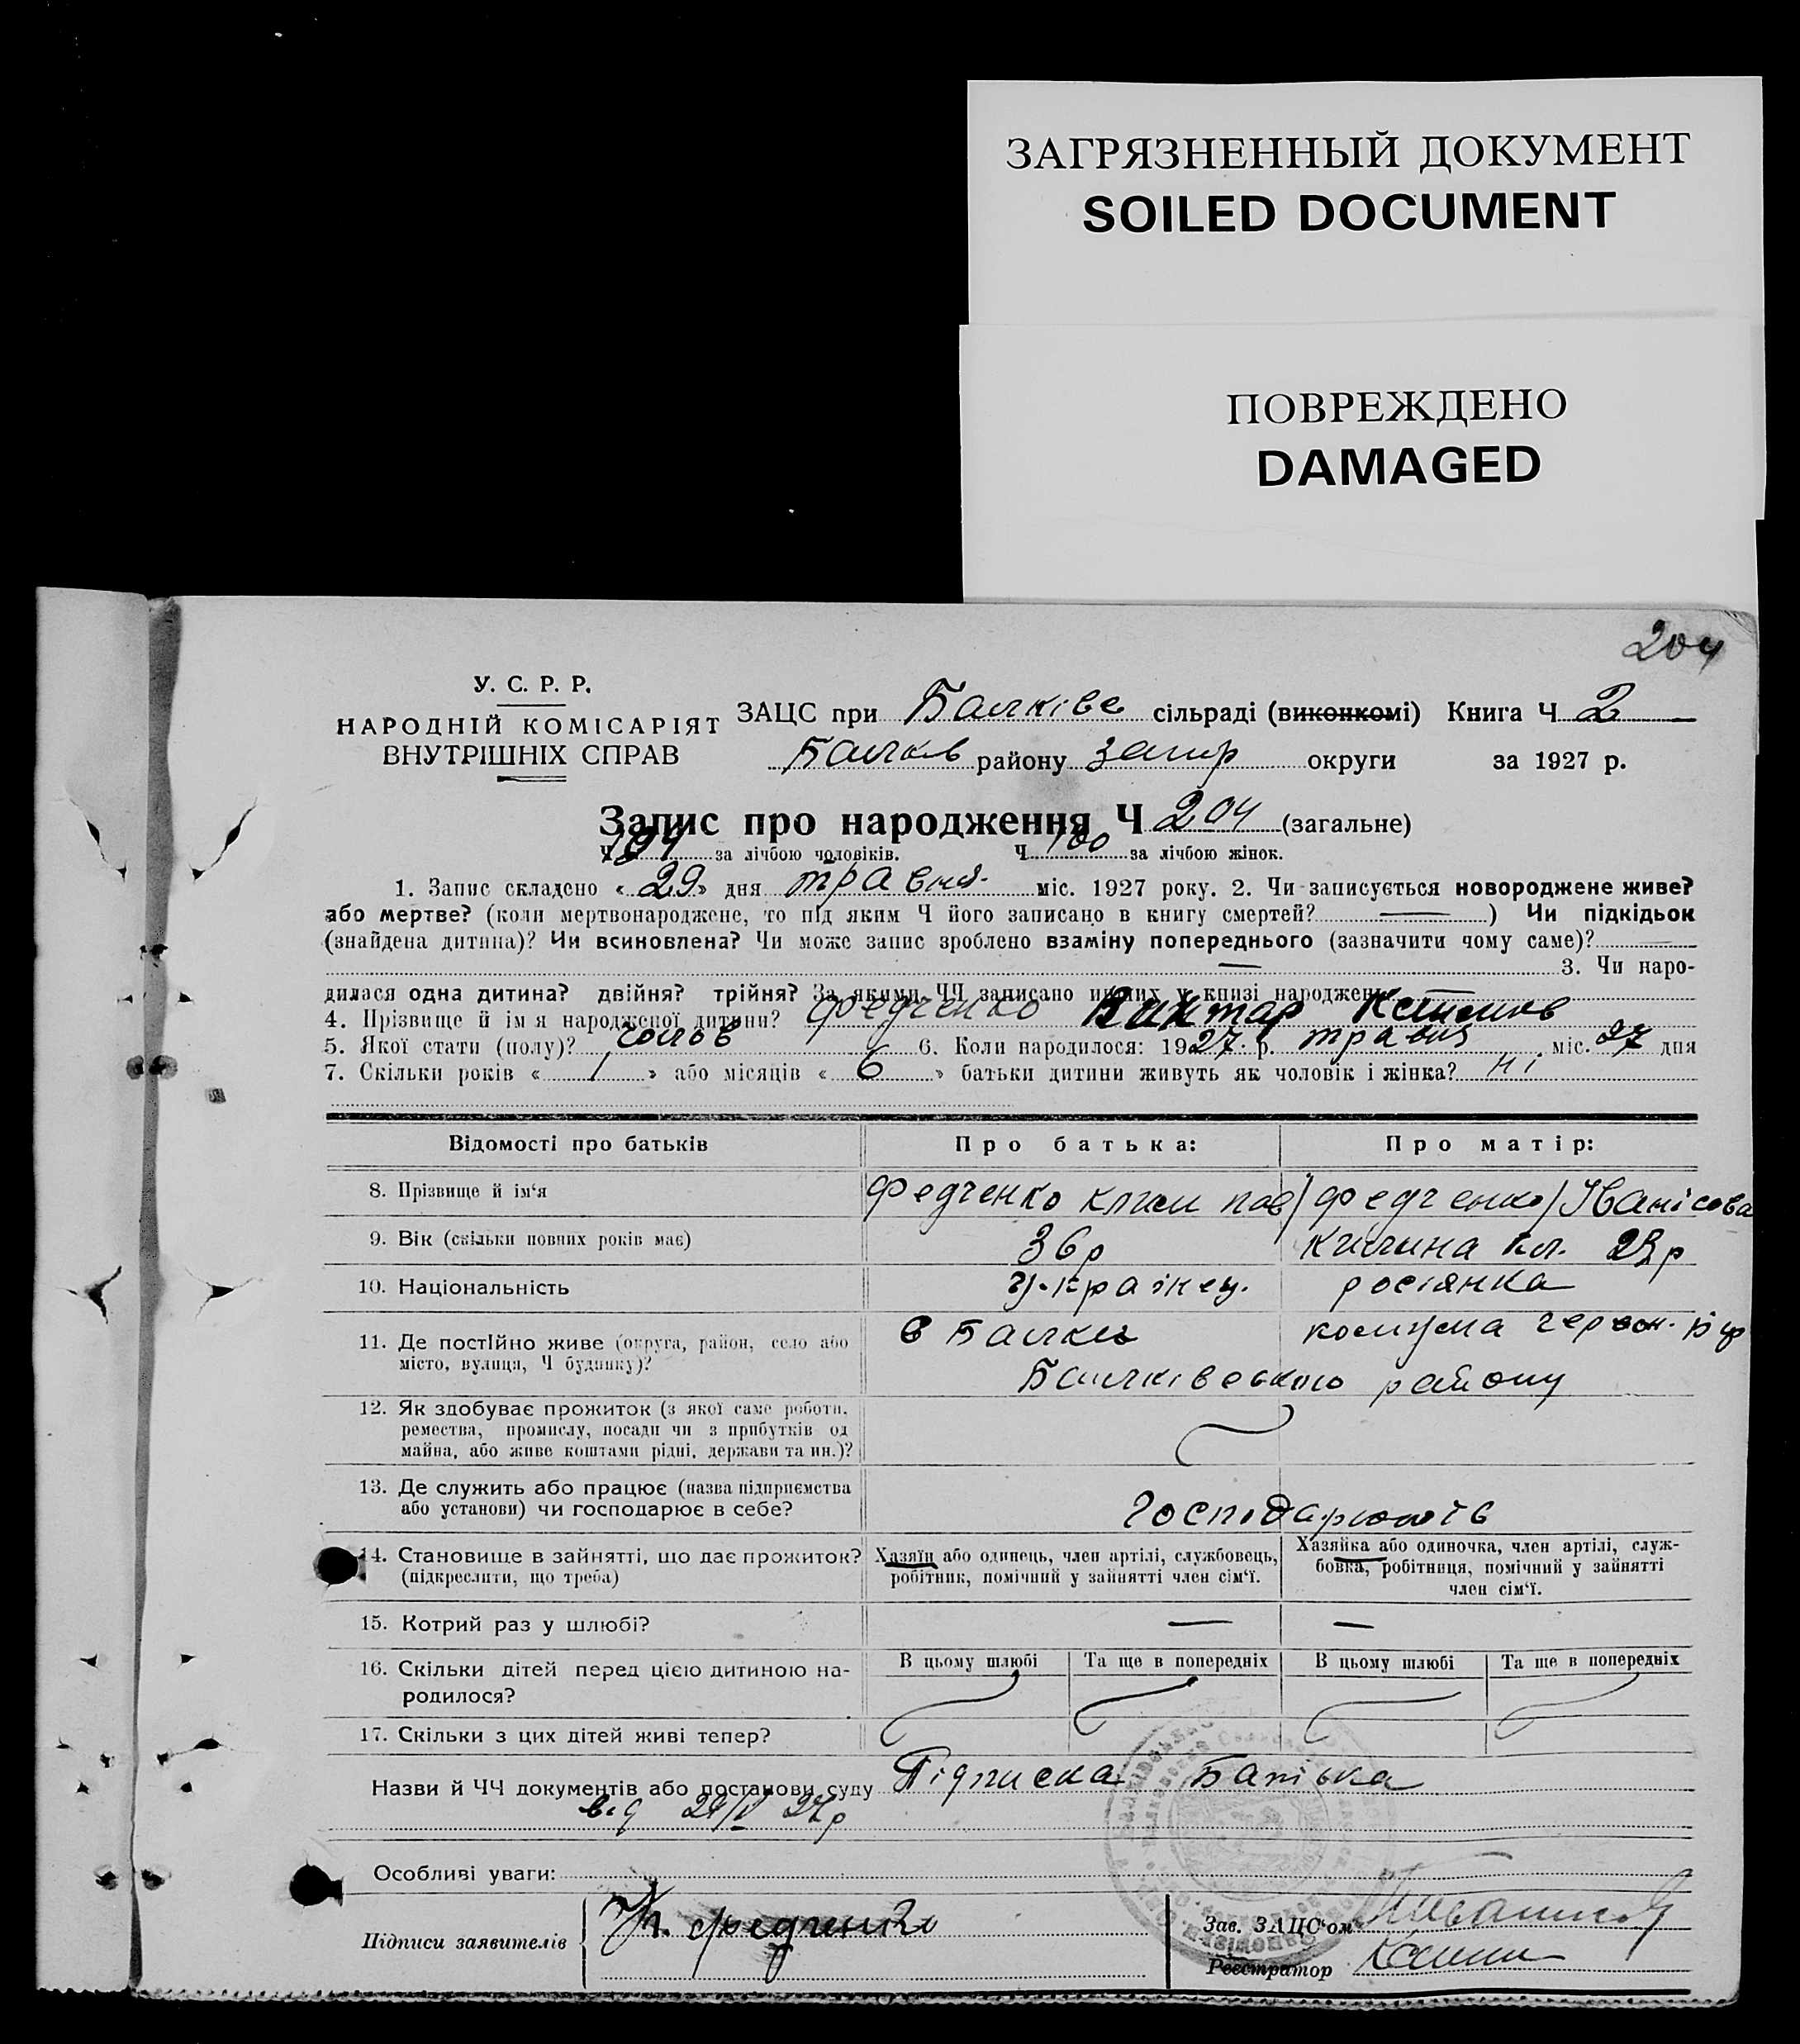 ЗАГРЯЗНЕННЫЙ ДОКУМЕНТ
SOILED DOCUMENT
ПОВРЕЖДЕНО
DAMAGED
204
У. С. Р. Р.
НАРОДНІЙ КОМІСАРІЯТ
ВНУТРІШНІХ СПРАВ
ЗАЦС при Балківс сільраді (виконкомі) Книга Ч 2
Балків району Запор округи за 1927 р.
Запис про народження Ч 204 (загальне)
Ч 104 за лічбою чоловіків. Ч 100 за лічбою жінок.
1. Запис складено « 29 » дня травня міс. 1927 року. 2. Чи записується новороджене живе?
або мертве? (коли мертвонароджене, то під яким Ч його записано в книгу смертей? — ) Чи підкідьок
(знайдена дитина)? Чи всиновлена? Чи може запис зроблено взаміну попереднього (зазначити чому саме)? —
— 3. Чи наро-
дилася одна дитина? двійня? трійня? За якими ЧЧ записано инших у книзі народжень —
4. Прізвище й ім я народженої дитини? Федченко Виктар
5. Якої стати (полу)? чолов 6. Коли народилося: 1927 р. травня міс. 27 дня
7. Скільки років « 1 » або місяців « 6 » батьки дитини живуть як чоловік і жінка? ні
Відомості про батьків Про батька: Про матір:
8. Прізвище й ім‘я Федченко Клим пав /Федченко/ Іванісова
9. Вік (скільки повних років має) 36р Килина 23р
10. Національність Українец. росіянка
11. Де постійно живе (округа, район, село або в Балках комуна червон.
місто, вулиця, Ч будинку)? Балківського району
12. Як здобуває прожиток (з якої саме роботи,
ремества, промислу, посади чи з прибутків од
майна, або живе коштами рідні, держави та ин.)?
13. Де служить або працює (назва підприємства
або установи) чи господарює в себе? господарюють
14. Становище в зайнятті, що дає прожиток? Хазяїн або одинець, член артілі, службовець, Хазяйка або одиночка, член артілі, служ-
(підкреслити, що треба) робітник, помічний у зайнятті член сім‘ї. бовка, робітниця, помічний у зайнятті
член сім‘ї.
15. Котрий раз у шлюбі? — —
16. Скільки дітей перед цією дитиною на- В цьому шлюбі Та ще в попередніх В цьому шлюбі Та ще в попередніх
родилося?
17. Скільки з цих дітей живі тепер?
Назви й ЧЧ документів або постанови суду Підписка Батька
від 29/V 27р
Особливі уваги:
Підписи заявителів Федченко Зав. ЗАЦС‘ом
Реєстратор